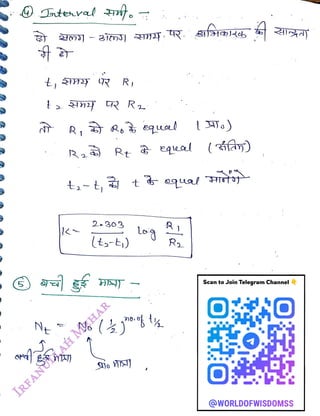 ④ Interval समी० -
दो अलग-अलग समय पर अभिकारक की सान्द्रता
दी हो
t₁ समय पर R₁
t₂ समय पर R₂
तो R₁ को R₀ के equal (प्रा०)
R₂ को Rt के equal (अंतिम)
t₂-t₁ को t के equal मानेंगे
K = 2.303/(t₂-t₁) log R₁/R₂
⑤ बची हुई मात्रा -
Nt = N₀ (1/2)^no. of t1/2
बची हुई मात्रा प्रा० मात्रा
Scan to Join Telegram Channel 👇
@WORLDOFWISDOMSS